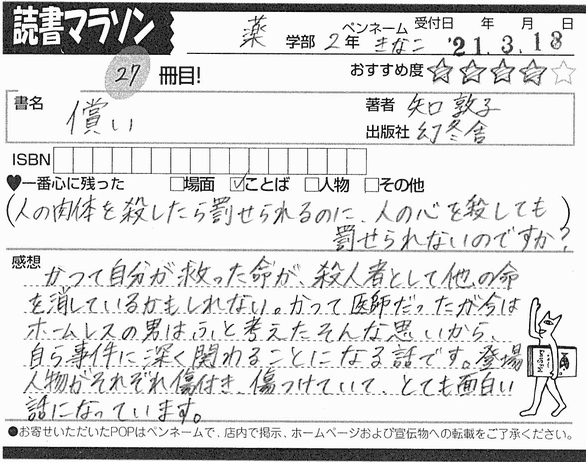 読書マラソン
薬 学部 2年 ペンネーム きなこ 受付日 '21年 3月 18日
27 冊目! おすすめ度 ★★★★☆
書名 償い 著者 矢口敦子
出版社 幻冬舎
ISBN
♥一番心に残った □場面 ☑ことば □人物 □その他
(人の肉体を殺したら罰せられるのに、人の心を殺しても
罰せられないのですか?)
感想
かつて自分が救った命が、殺人者として他の命
を消しているかもしれない。かつて医師だったが今は
ホームレスの男はふと考えたそんな思いから、
自ら事件に深く関わることになる話です。登場
人物がそれぞれ傷付き、傷つけていて、とても面白い
話になっています。
●お寄せいただいたPOPはペンネームで、店内で掲示、ホームページおよび宣伝物への転載をご了承ください。